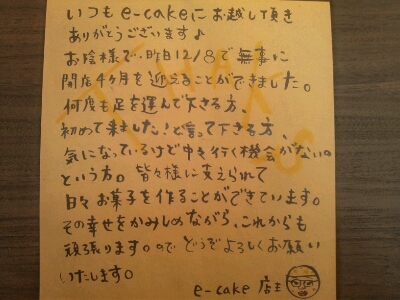 いつもe-cakeにお越し頂き
ありがとうございます♪
お陰様で、昨日12/8で無事に
開店4ヶ月を迎えることができました。
何度も足を運んで下さる方、
初めて来ました!と言って下さる方、
気になっているけど中々行く機会がないの
という方。皆々様に支えられて
日々お菓子を作ることができています。
その幸せをかみしめながら、これからも
頑張ります。ので どうぞよろしくお願い
いたします。
e-cake 店主